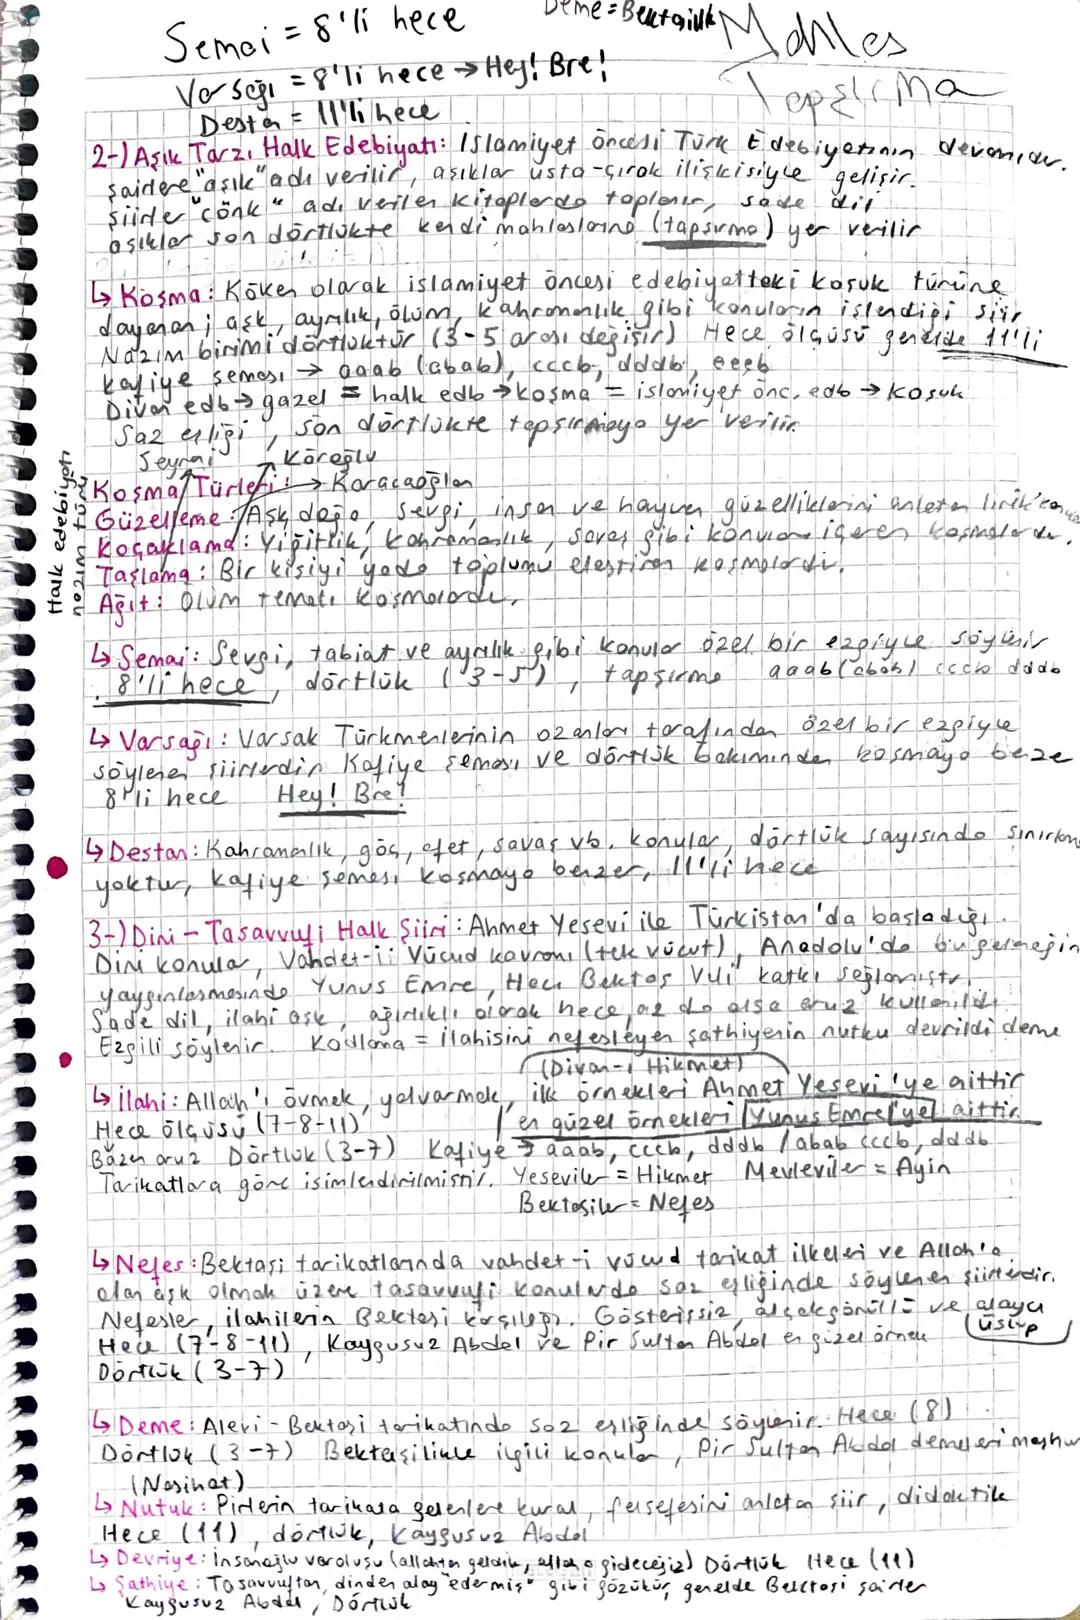 Semai = 8'li hece
Deme = Bektaşilik
Mahlas
Tapşırma
Varsağı = 8'li hece → Hey! Bre!
Destan = 11'li hece
2-) Aşık Tarzı Halk Edebiyatı: İslamiyet öncesi Türk Edebiyatının devamıdır.
şairlere "aşık" adı verilir, aşıklar usta-çırak ilişkisiyle gelişir.
şiirler "cönk" adı verilen kitaplarda toplanır, sade dil
aşıklar son dörtlükte kendi mahlaslarına (tapşırma) yer verilir
↳ Koşma: Köken olarak islamiyet öncesi edebiyattaki koşuk türüne
dayanan; aşk, ayrılık, ölüm, kahramanlık gibi konuların işlendiği şiir
Nazım birimi dörtlüktür (3-5 arası değişir) Hece ölçüsü genelde 11'li
kafiye şeması → aaab (abab), cccb, dddb, eeeb
Divan edb → gazel = halk edb → koşma = islamiyet önc. edb → Koşuk
Saz eşliği, son dörtlükte tapşırmaya yer verilir.
Seyrani Köroğlu
Halk edebiyatı nazım türü
Koşma Türleri: → Karacaoğlan
Güzelleme: Aşk, doğa, sevgi, insan ve hayvan güzelliklerini anlatan lirik
Koçaklama: Yiğitlik, kahramanlık, savaş gibi konuları içeren koşmalardır.
Taşlama: Bir kişiyi yada toplumu eleştiren koşmalardır.
Ağıt: Ölüm temalı koşmalardır.
↳ Semai: Sevgi, tabiat ve ayrılık gibi konular özel bir ezgiyle söylenir
8'li hece, dörtlük (3-5), tapşırma aaab (abab) cccb dddb
↳ Varsağı: Varsak Türkmenlerinin ozanları tarafından özel bir ezgiyle
söylenen şiirlerdir. Kafiye şeması ve dörtlük bakımından koşmaya benze
8'li hece Hey! Bre!
↳ Destan: Kahramanlık, göç, afet, savaş vb. konular, dörtlük sayısında sınırlama
yoktur, kafiye şeması koşmaya benzer, 11'li hece
3-) Dini - Tasavvufi Halk Şiiri: Ahmet Yesevi ile Türkistan'da başladığı.
Dini konular, Vahdet-i Vücud kavramı (tek vücut), Anadolu'da bu geleneğin
yaygınlaşmasında Yunus Emre, Hacı Bektaş Veli katkı sağlamıştır.
Sade dil, ilahi aşk, ağırlıklı olarak hece, az da olsa aruz kullanıldı
Ezgili söylenir. Kodlama = ilahisini nefesleyen şathiyenin nutku devrildi deme
(Divan-ı Hikmet)
↳ ilahi: Allah'ı övmek, yalvarmak, ilk örnekleri Ahmet Yesevi'ye aittir
Hece ölçüsü (7-8-11) en güzel örnekleri Yunus Emre'ye aittir.
Bazen aruz Dörtlük (3-7) Kafiye → aaab, cccb, dddb / abab cccb, dddb
Tarikatlara göre isimlendirilmiştir. Yeseviler = Hikmet Mevleviler = Ayin
Bektaşiler = Nefes
↳ Nefes: Bektaşi tarikatlarında vahdet-i vücud tarikat ilkeleri ve Allah'a
olan aşk olmak üzere tasavvufi konularda saz eşliğinde söylenen şiirlerdir.
Nefesler, ilahilerin Bektaşi karşılığı. Gösterişsiz, alçakgönüllü ve alaycı üslup
Hece (7-8-11), Kaygusuz Abdal ve Pir Sultan Abdal en güzel örnek
Dörtlük (3-7)
↳ Deme: Alevi - Bektaşi tarikatında saz eşliğinde söylenir. Hece (8)
Dörtlük (3-7) Bektaşilikle ilgili konular, Pir Sultan Abdal demeleri meşhur
(Nasihat)
↳ Nutuk: Pirlerin tarikata gelenlere kural, felsefesini anlatan şiir, didaktik
Hece (11), dörtlük, Kaygusuz Abdal
↳ Devriye: insanoğlu varoluşu (allahtan geldik, allaha gideceğiz) Dörtlük Hece (11)
↳ Şathiye: Tasavvuftan, dinden alay "edermiş" gibi gözükür, genelde Bektaşi şairler
Kaygusuz Abdal, Dörtlük